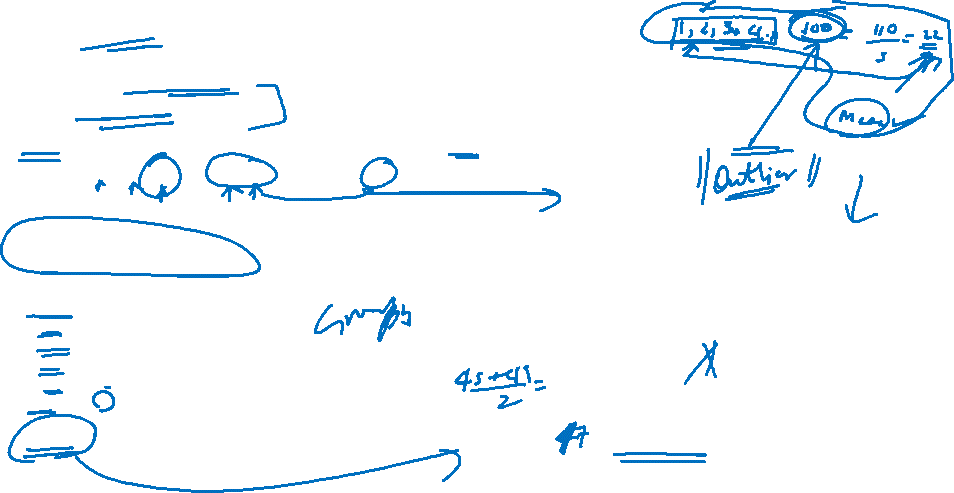 1, 2, 3, 4, 100 = 110/5 = 22
Mean
|| Outlier ||
Graphs
45 + 49 / 2 =
47